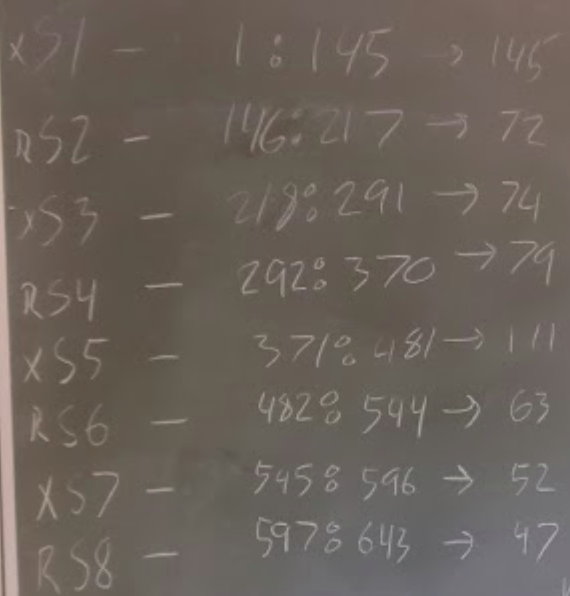 XS1 - 1:145 → 145
RS2 - 146:217 → 72
XS3 - 218:291 → 74
RS4 - 292:370 → 79
XS5 - 371:481 → 111
RS6 - 482:544 → 63
XS7 - 545:596 → 52
RS8 - 597:643 → 47